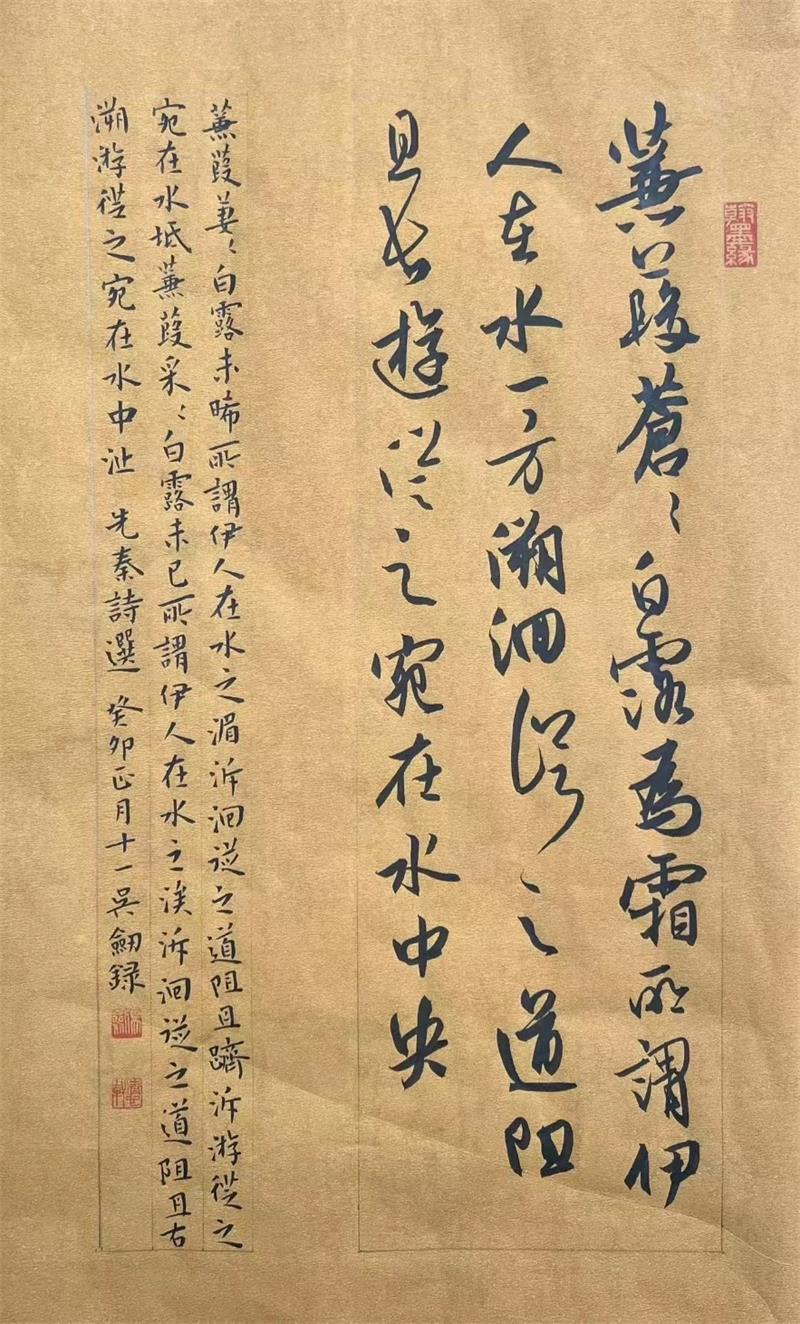 翰墨緣
蒹葭蒼〻白露為霜所謂伊
人在水一方溯洄從之道阻
且長遊從之宛在水中央
蒹葭萋〻白露未晞所謂伊人在水之湄泝洄從之道阻且躋泝游從之
宛在水坻蒹葭采〻白露未已所謂伊人在水之涘泝洄從之道阻且右
溯游從之宛在水中沚 先秦詩選 癸卯正月十一吳劒録